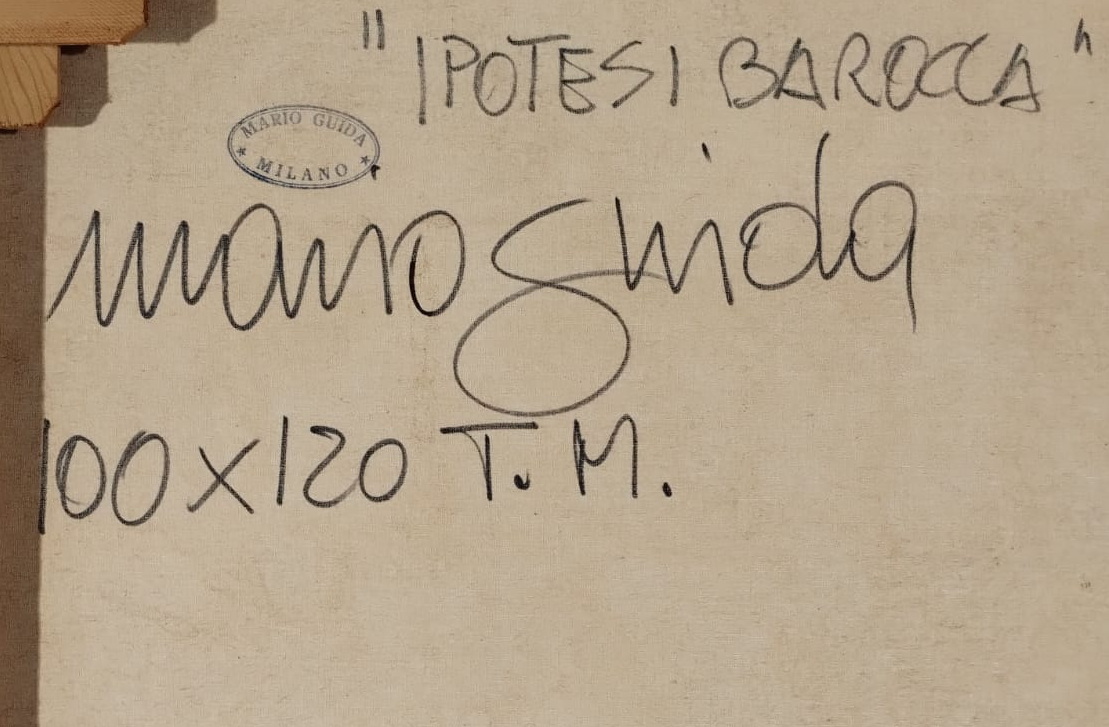 "IPOTESI BAROCCA"
MARIO GUIDA
★ MILANO ★
mario guida
100x120 T.M.